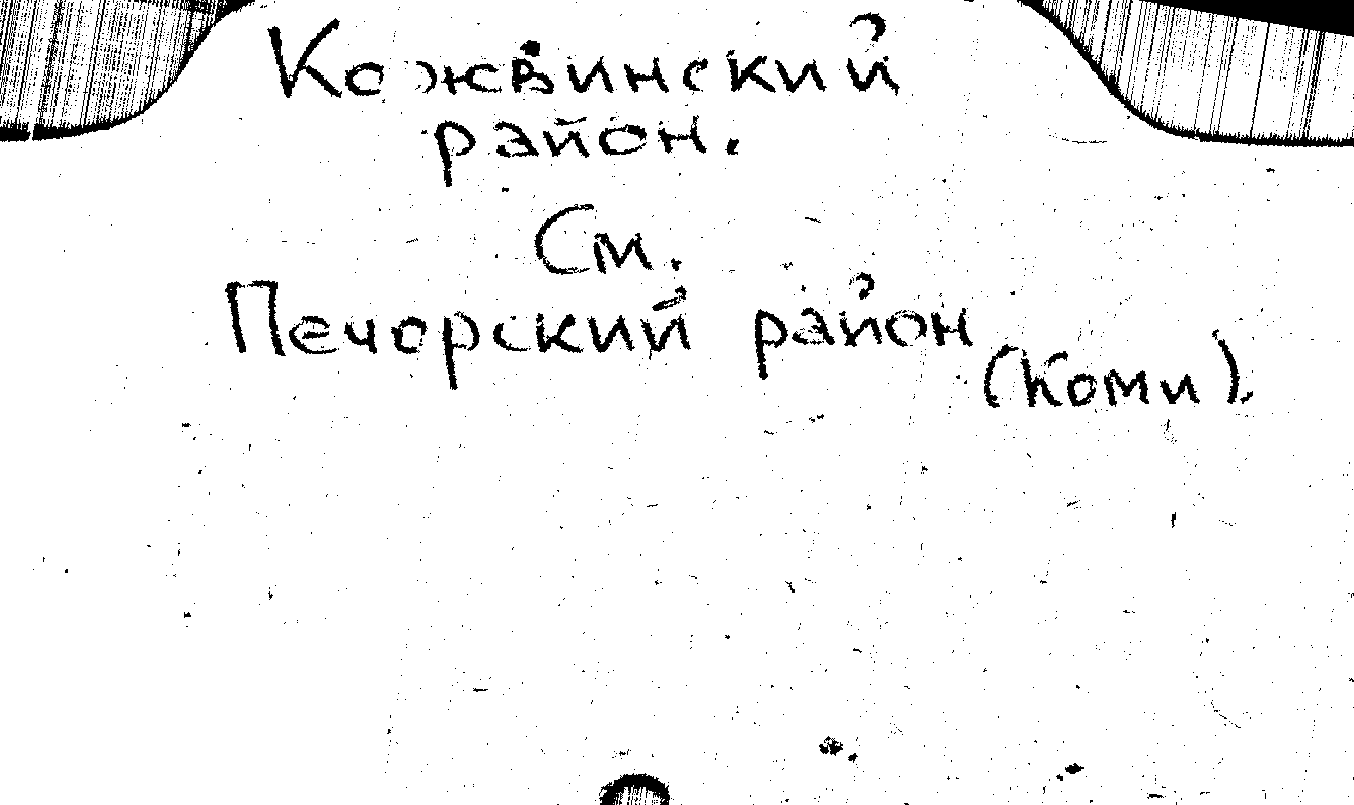 Кожвинский
район.
См.
Печорский район
(Коми).